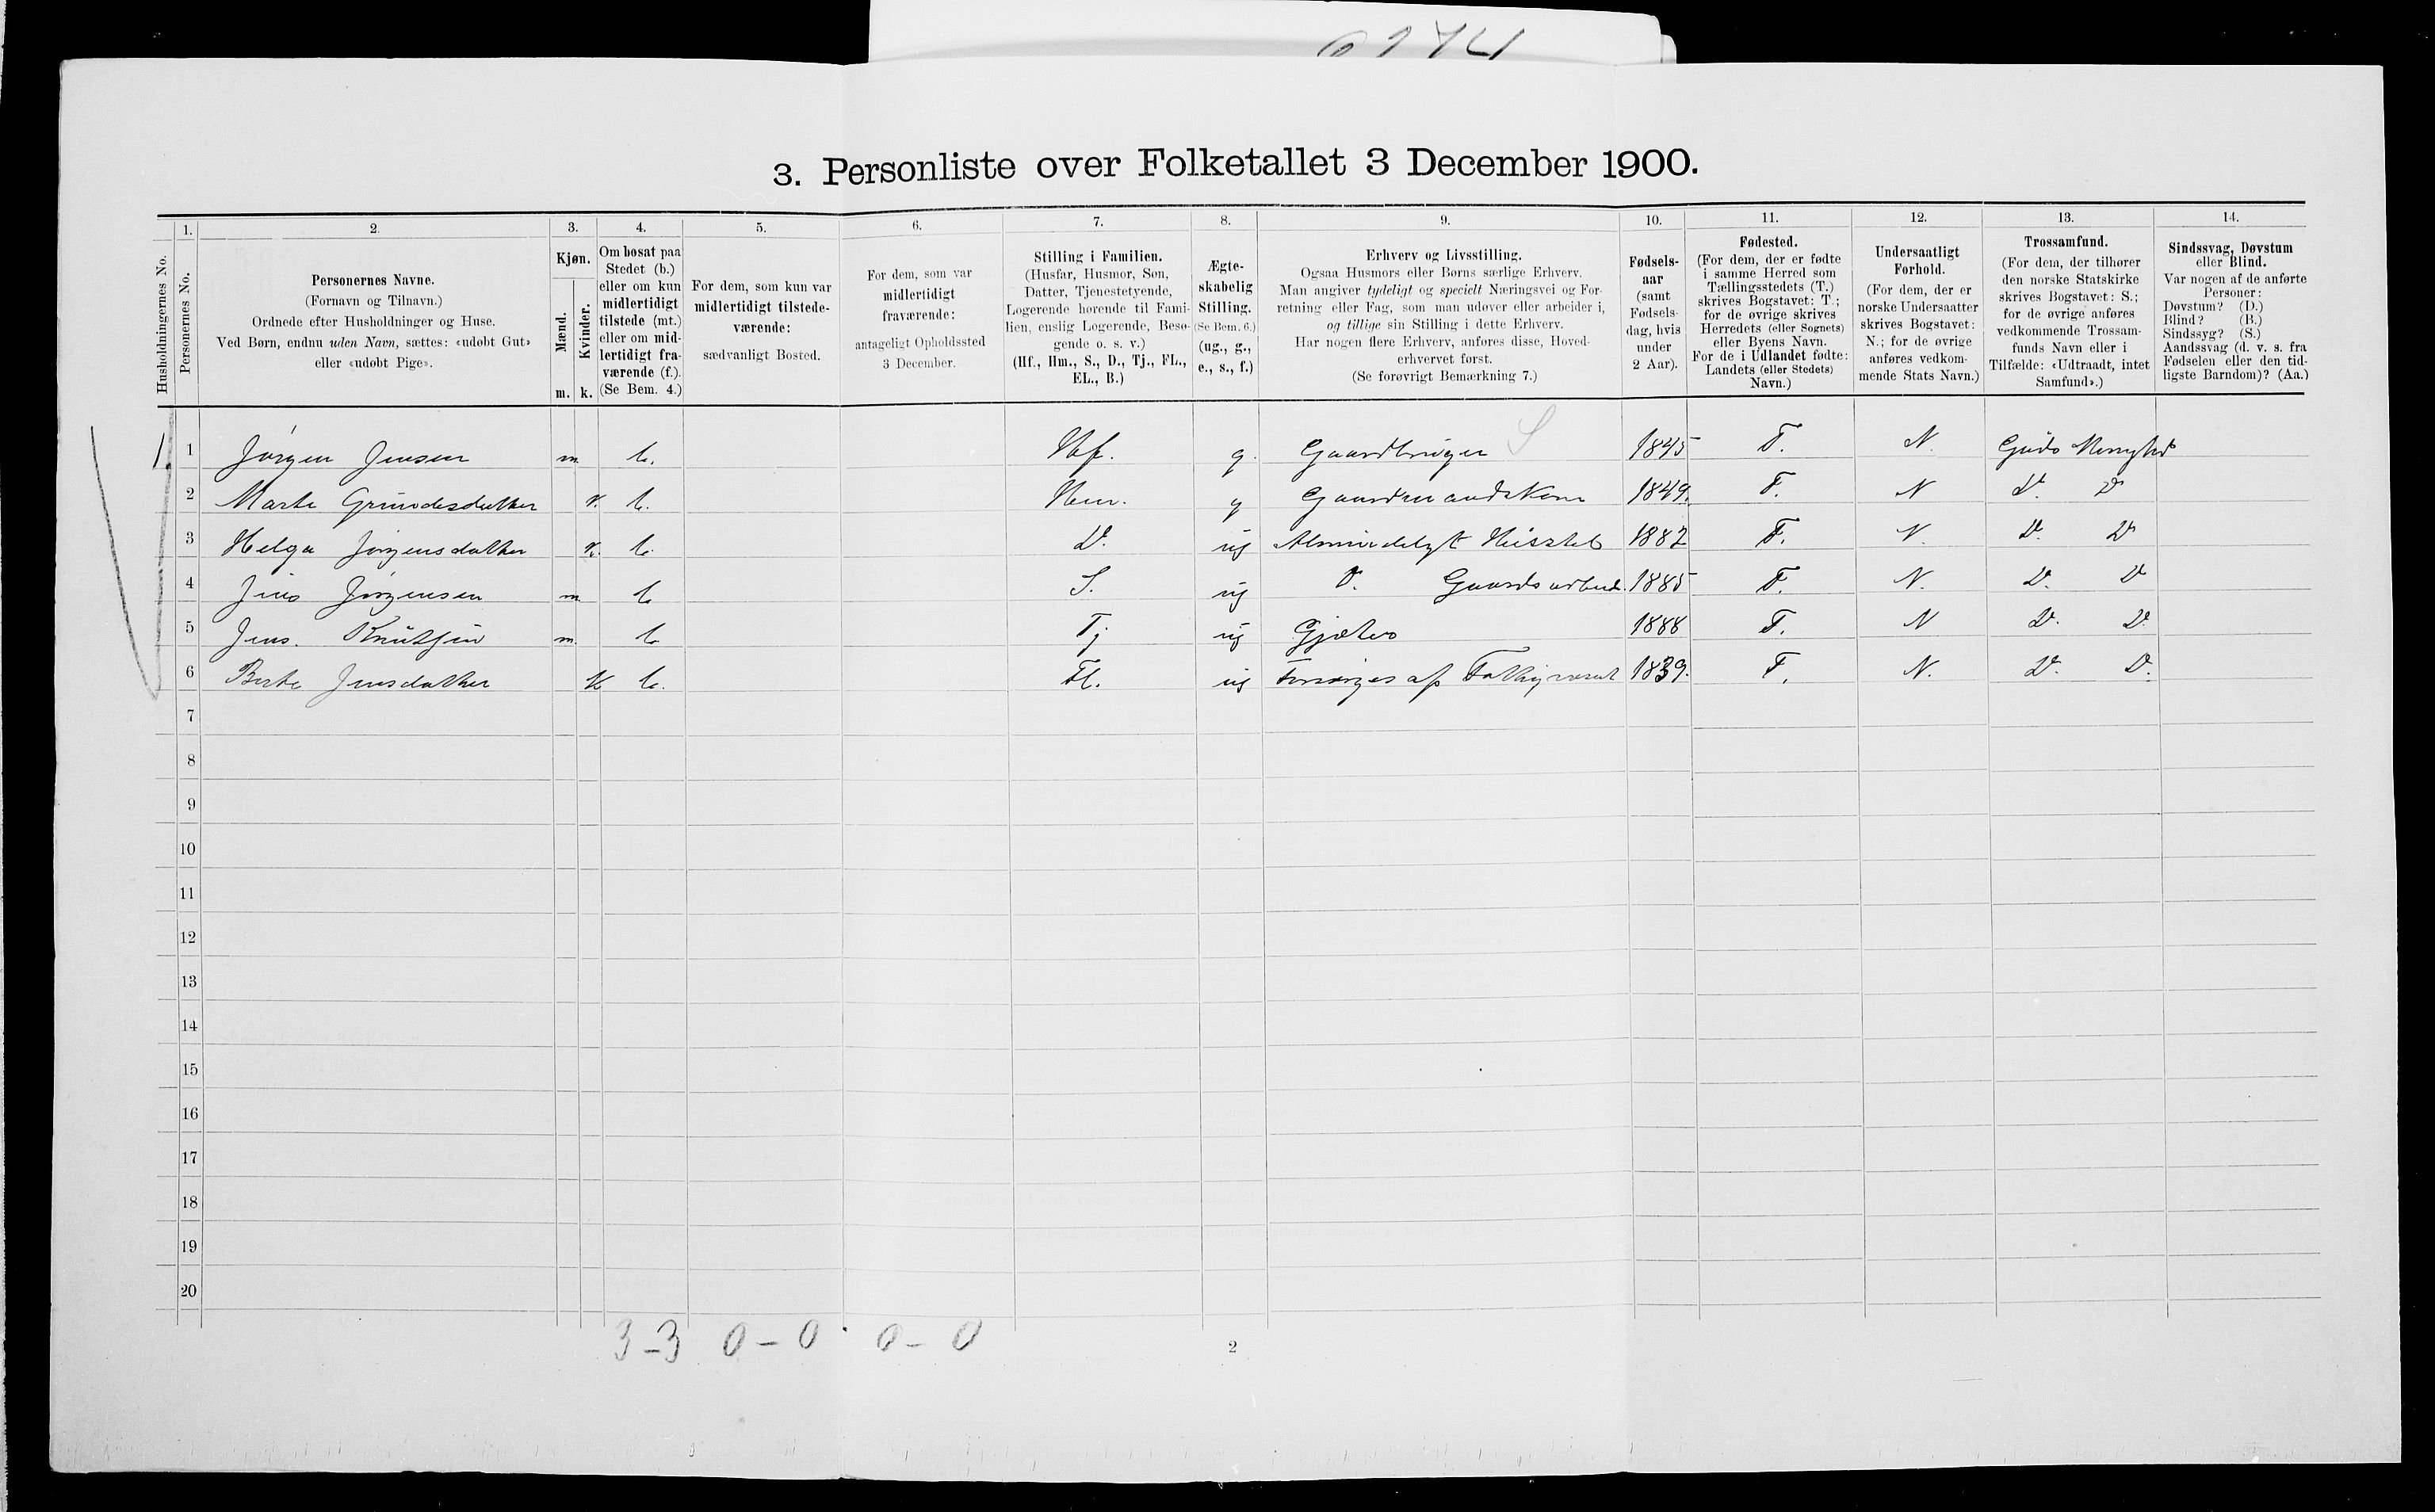 3. Personliste over Folketallet 3 December 1900.
1. 2. 3. 4. 5. 6. 7. 8. 9. 10. 11. 12. 13. 14.
Husholdningernes No.
Personernes No.
Personernes Navne.
(Fornavn og Tilnavn.)
Ordnede efter Husholdninger og Huse.
Ved Børn, endnu uden Navn, sættes: «udøbt Gut»
eller «udøbt Pige».
Kjøn.
Mænd.
Kvinder.
m. k.
Om bosat paa
Stedet (b.)
eller om kun
midlertidigt
tilstede (mt.)
eller om mid-
lertidigt fra-
værende (f.).
(Se Bem. 4.)
For dem, som kun var
midlertidigt tilstede-
værende:
sædvanligt Bosted.
For dem, som var
midlertidigt
fraværende:
antageligt Opholdssted
3 December.
Stilling i Familien.
(Husfar, Husmor, Søn,
Datter, Tjenestetyende,
Logerende hørende til Fami-
lien, enslig Logerende, Besø-
gende o. s. v.)
(Hf., Hm., S., D., Tj., FL.,
EL., B.)
Ægte-
skabelig
Stilling.
(Se Bem. 6.)
(ug., g.,
e., s., f.)
Erhverv og Livsstilling.
Ogsaa Husmors eller Børns særlige Erhverv.
Man angiver tydeligt og specielt Næringsvei og For-
retning eller Fag, som man udøver eller arbeider i,
og tillige sin Stilling i dette Erhverv.
Har nogen flere Erhverv, anføres disse, Hoved-
erhvervet først.
(Se forøvrigt Bemærkning 7.)
Fødsels-
aar
(samt
Fødsels-
dag, hvis
under
2 Aar).
Fødested.
(For dem, der er fødte
i samme Herred som
Tællingsstedets (T.)
skrives Bogstavet: T.;
for de øvrige skrives
Herredets (eller Sognets)
eller Byens Navn.
For de i Udlandet fødte:
Landets (eller Stedets)
Navn.)
Undersaatligt
Forhold.
(For dem, der er
norske Undersaatter
skrives Bogstavet:
N.; for de øvrige
anføres vedkom-
mende Stats Navn.)
Trossamfund.
(For dem, der tilhører
den norske Statskirke
skrives Bogstavet: S.;
for de øvrige anføres
vedkommende Trossam-
funds Navn eller i
Tilfælde: «Udtraadt, intet
Samfund».)
Sindssvag, Døvstum
eller Blind.
Var nogen af de anførte
Personer:
Døvstum? (D.)
Blind? (B.)
Sindssyg? (S.)
Aandssvag (d. v. s. fra
Fødselen eller den tid-
ligste Barndom)? (Aa.)
1. 1 Jørgen Jensen m. b. Hf. g. Gaardbruger S 1845 T. N.
2 Marte k. b. Hm. g Gaardmandskone 1849. T. N D. D
3 Helga Jørgensdatter k. b. D. ug 1882 T. N. D. D
4 Jens Jørgensen m. b. S. ug D. Gaardsarbeid. 1885 T. N. D. D
5 Jens. Knutsen m. b Tj ug Gjæter 1888 T. N D. D.
6 Berte Jensdatter k b. Fl. ug Forsørges af Fattigvæsnet 1839. T. N. D. D.
7
8
9
10
11
12
13
14
15
16
17
18
19
20
3-3 0-0 0-0
2